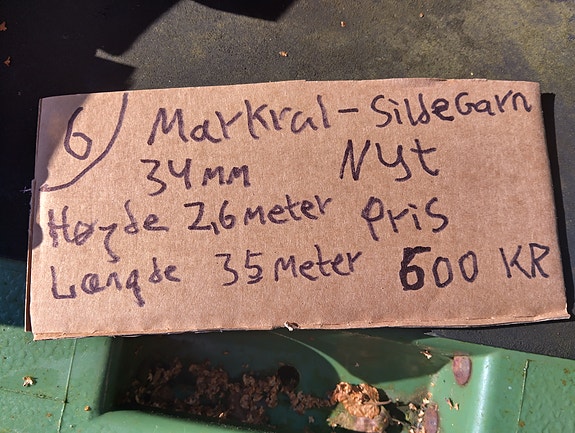 6
Markral - SildeGarn
34mm Nyt
Højde 2,6 meter Pris
Længde 35 Meter 600 KR